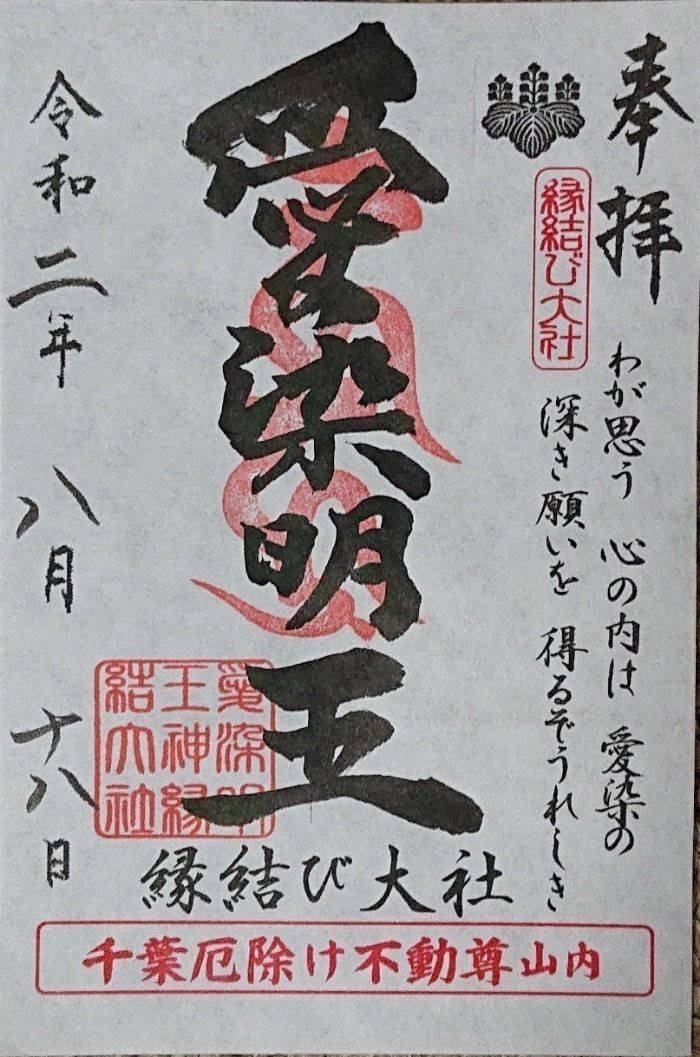 奉拝
縁結び大社
わが思う 心の内は 愛染の
深き願いを 得るぞうれしき
愛染明王
愛染明
王神縁
結大社
縁結び大社
令和二年 八月 十八日
千葉厄除け不動尊山内